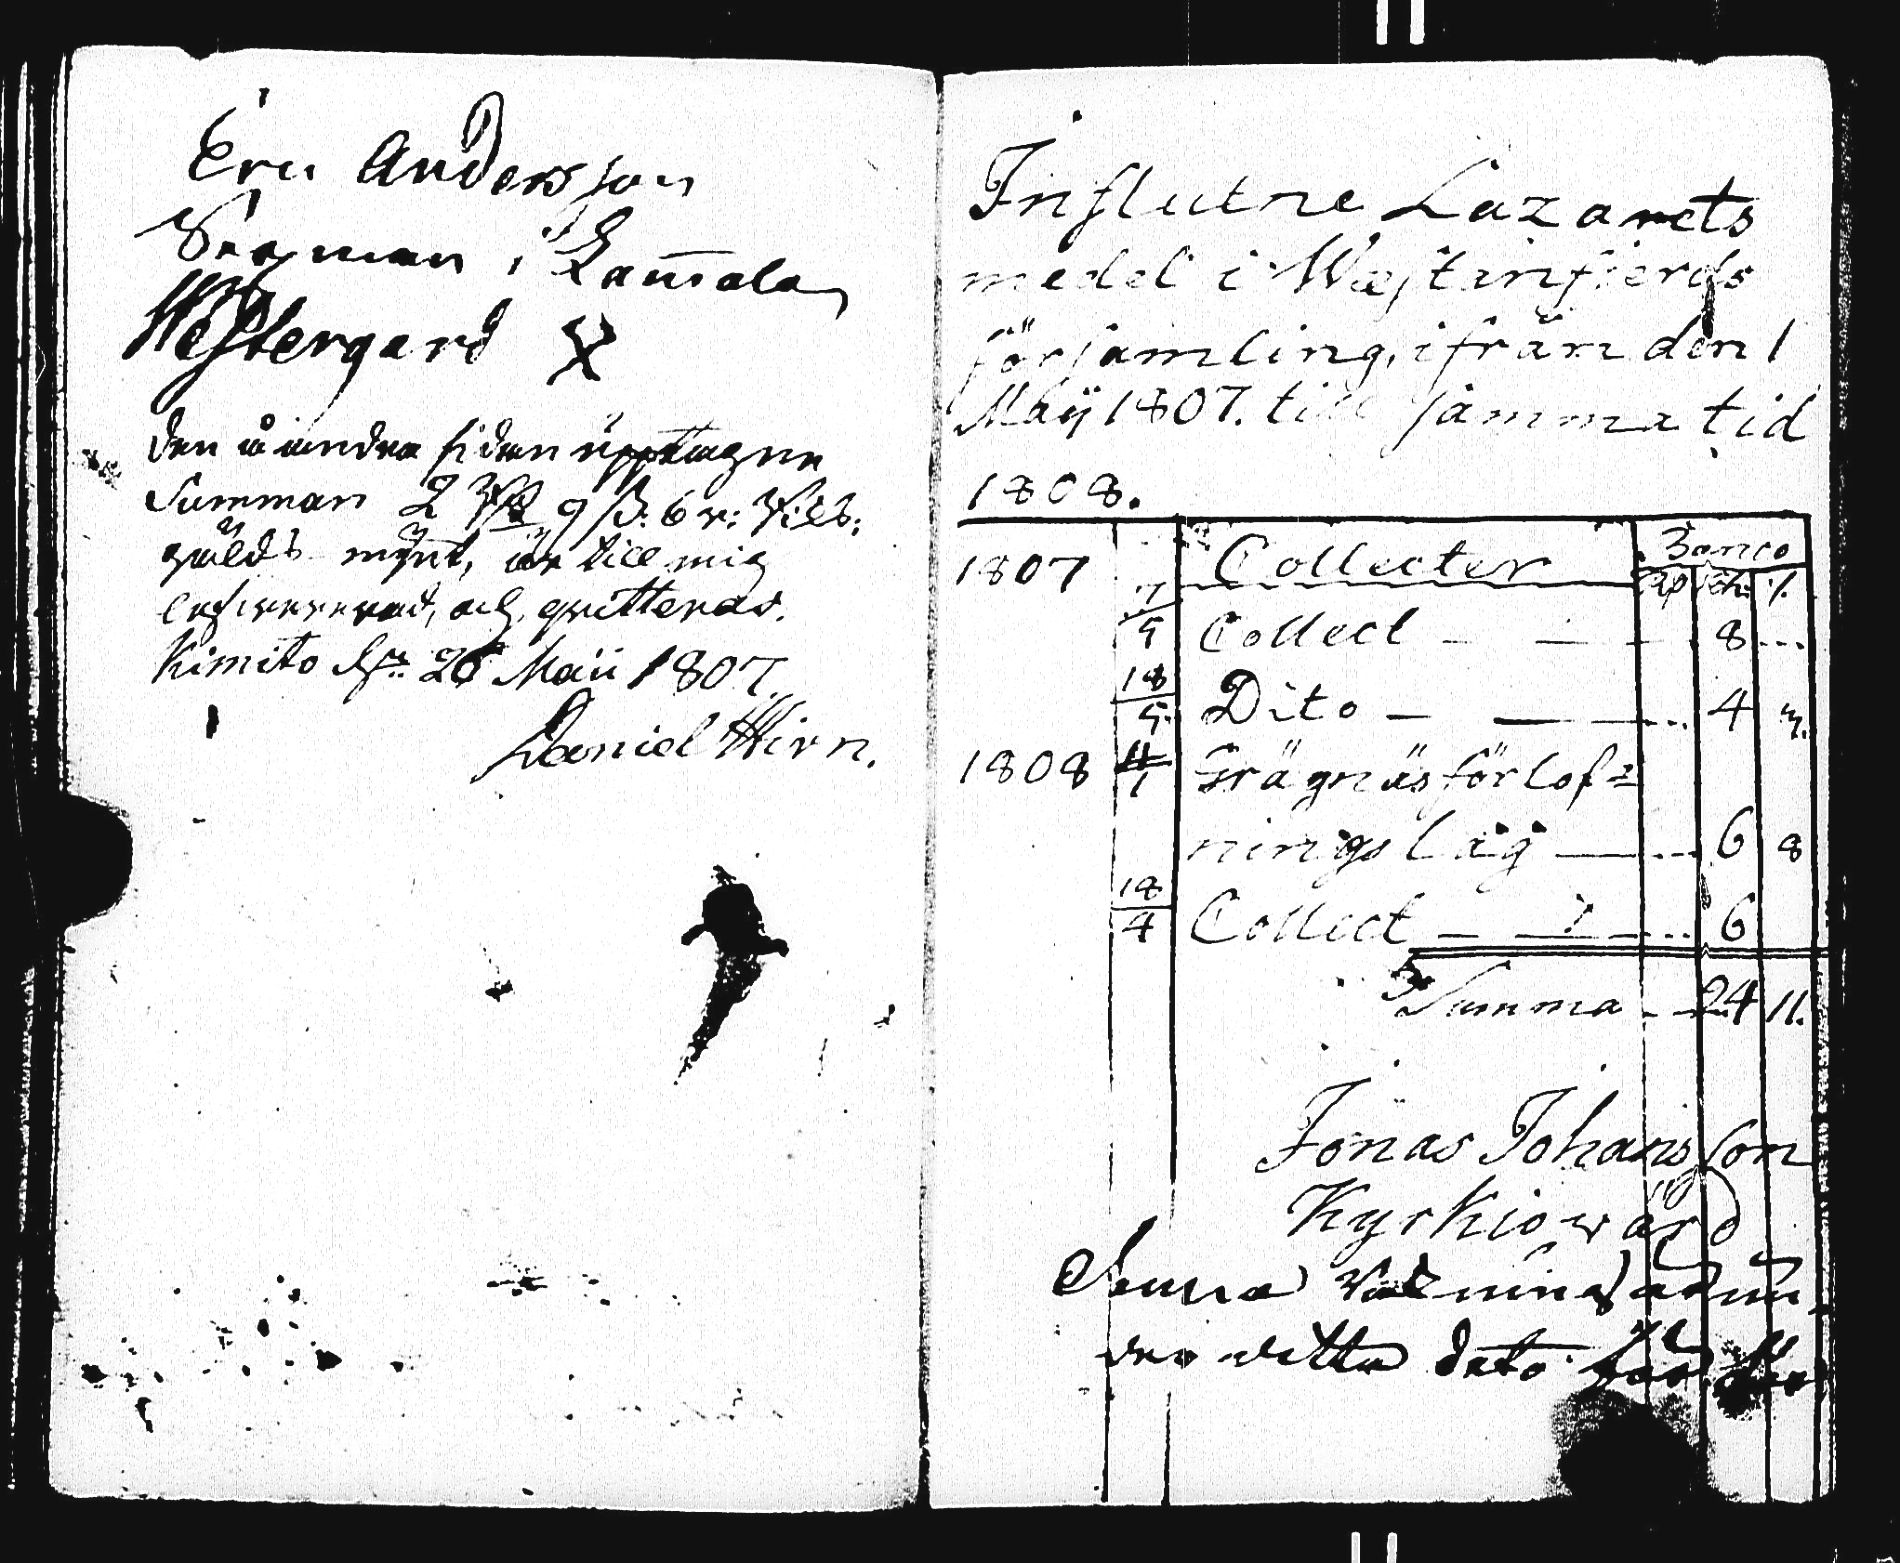 Eric Andersson
i Lammala
Westergard
den å andra sidan upptagne
Summan 2 9 ß: 6 r: Riks-
gälds mÿnt, är till mig
lefwererad, och qvitteras.
Kimito 26 Maii 1807.
Daniel Hirn.
Influtne Lazarets
medel i Wæstinfierds
församling, ifrån den 1
Maÿ 1807. till samma tid
1808.
Collecter Banco
1807 sch:
7/5 Collect — — — 8 ...
18/5 Dito — — — 4 3.
1808 1 Grägnäs förlof=
nings läg — 6 8
18/4 Collect — — — 6
Summa — 24 11.
Jonas Johansson
Kyrkiowärd
denna
detta dato